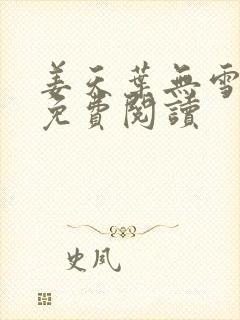 姜天葉無雪
免費閱讀
史風